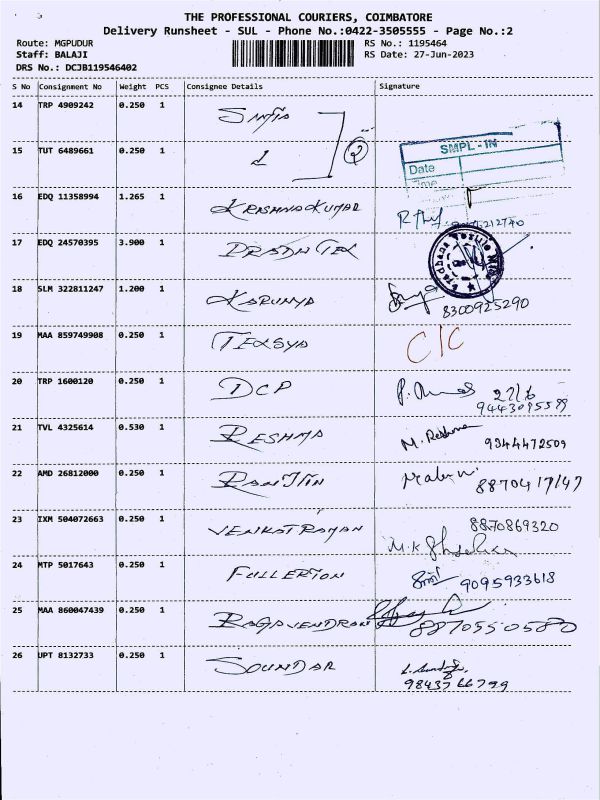 THE PROFESSIONAL COURIERS, COIMBATORE
Delivery Runsheet - SUL - Phone No.:0422-3505555 - Page No.:2
Route: MGPUDUR RS No.: 1195464
Staff: BALAJI RS Date: 27-Jun-2023
DRS No.: DCJB119546402
S No Consignment No Weight PCS Consignee Details Signature
14 TRP 4909242 0.250 1
2
SMPL-IN
15 TUT 6489661 0.250 1
Date
Time
16 EDQ 11358994 1.265 1 KRISHNAKUMAR
17 EDQ 24570395 3.900 1 PRADN TEX
Textile Mills
18 SLM 322811247 1.200 1 KARUNYA
8300925290
19 MAA 859749908 0.250 1 TEXSYA C/C
20 TRP 1600120 0.250 1 DCP 27/6
21 TVL 4325614 0.530 1 RESHMA M. Reshma 9344472509
22 AMD 26812000 0.250 1 8870417147
23 IXM 504072663 0.250 1 VENKATRAMAN 8870869320
24 MTP 5017643 0.250 1 FULLERTON 9095933618
25 MAA 860047439 0.250 1 RAGAVENDRAN 8870550580
26 UPT 8132733 0.250 1 SOUNDAR
9843766799